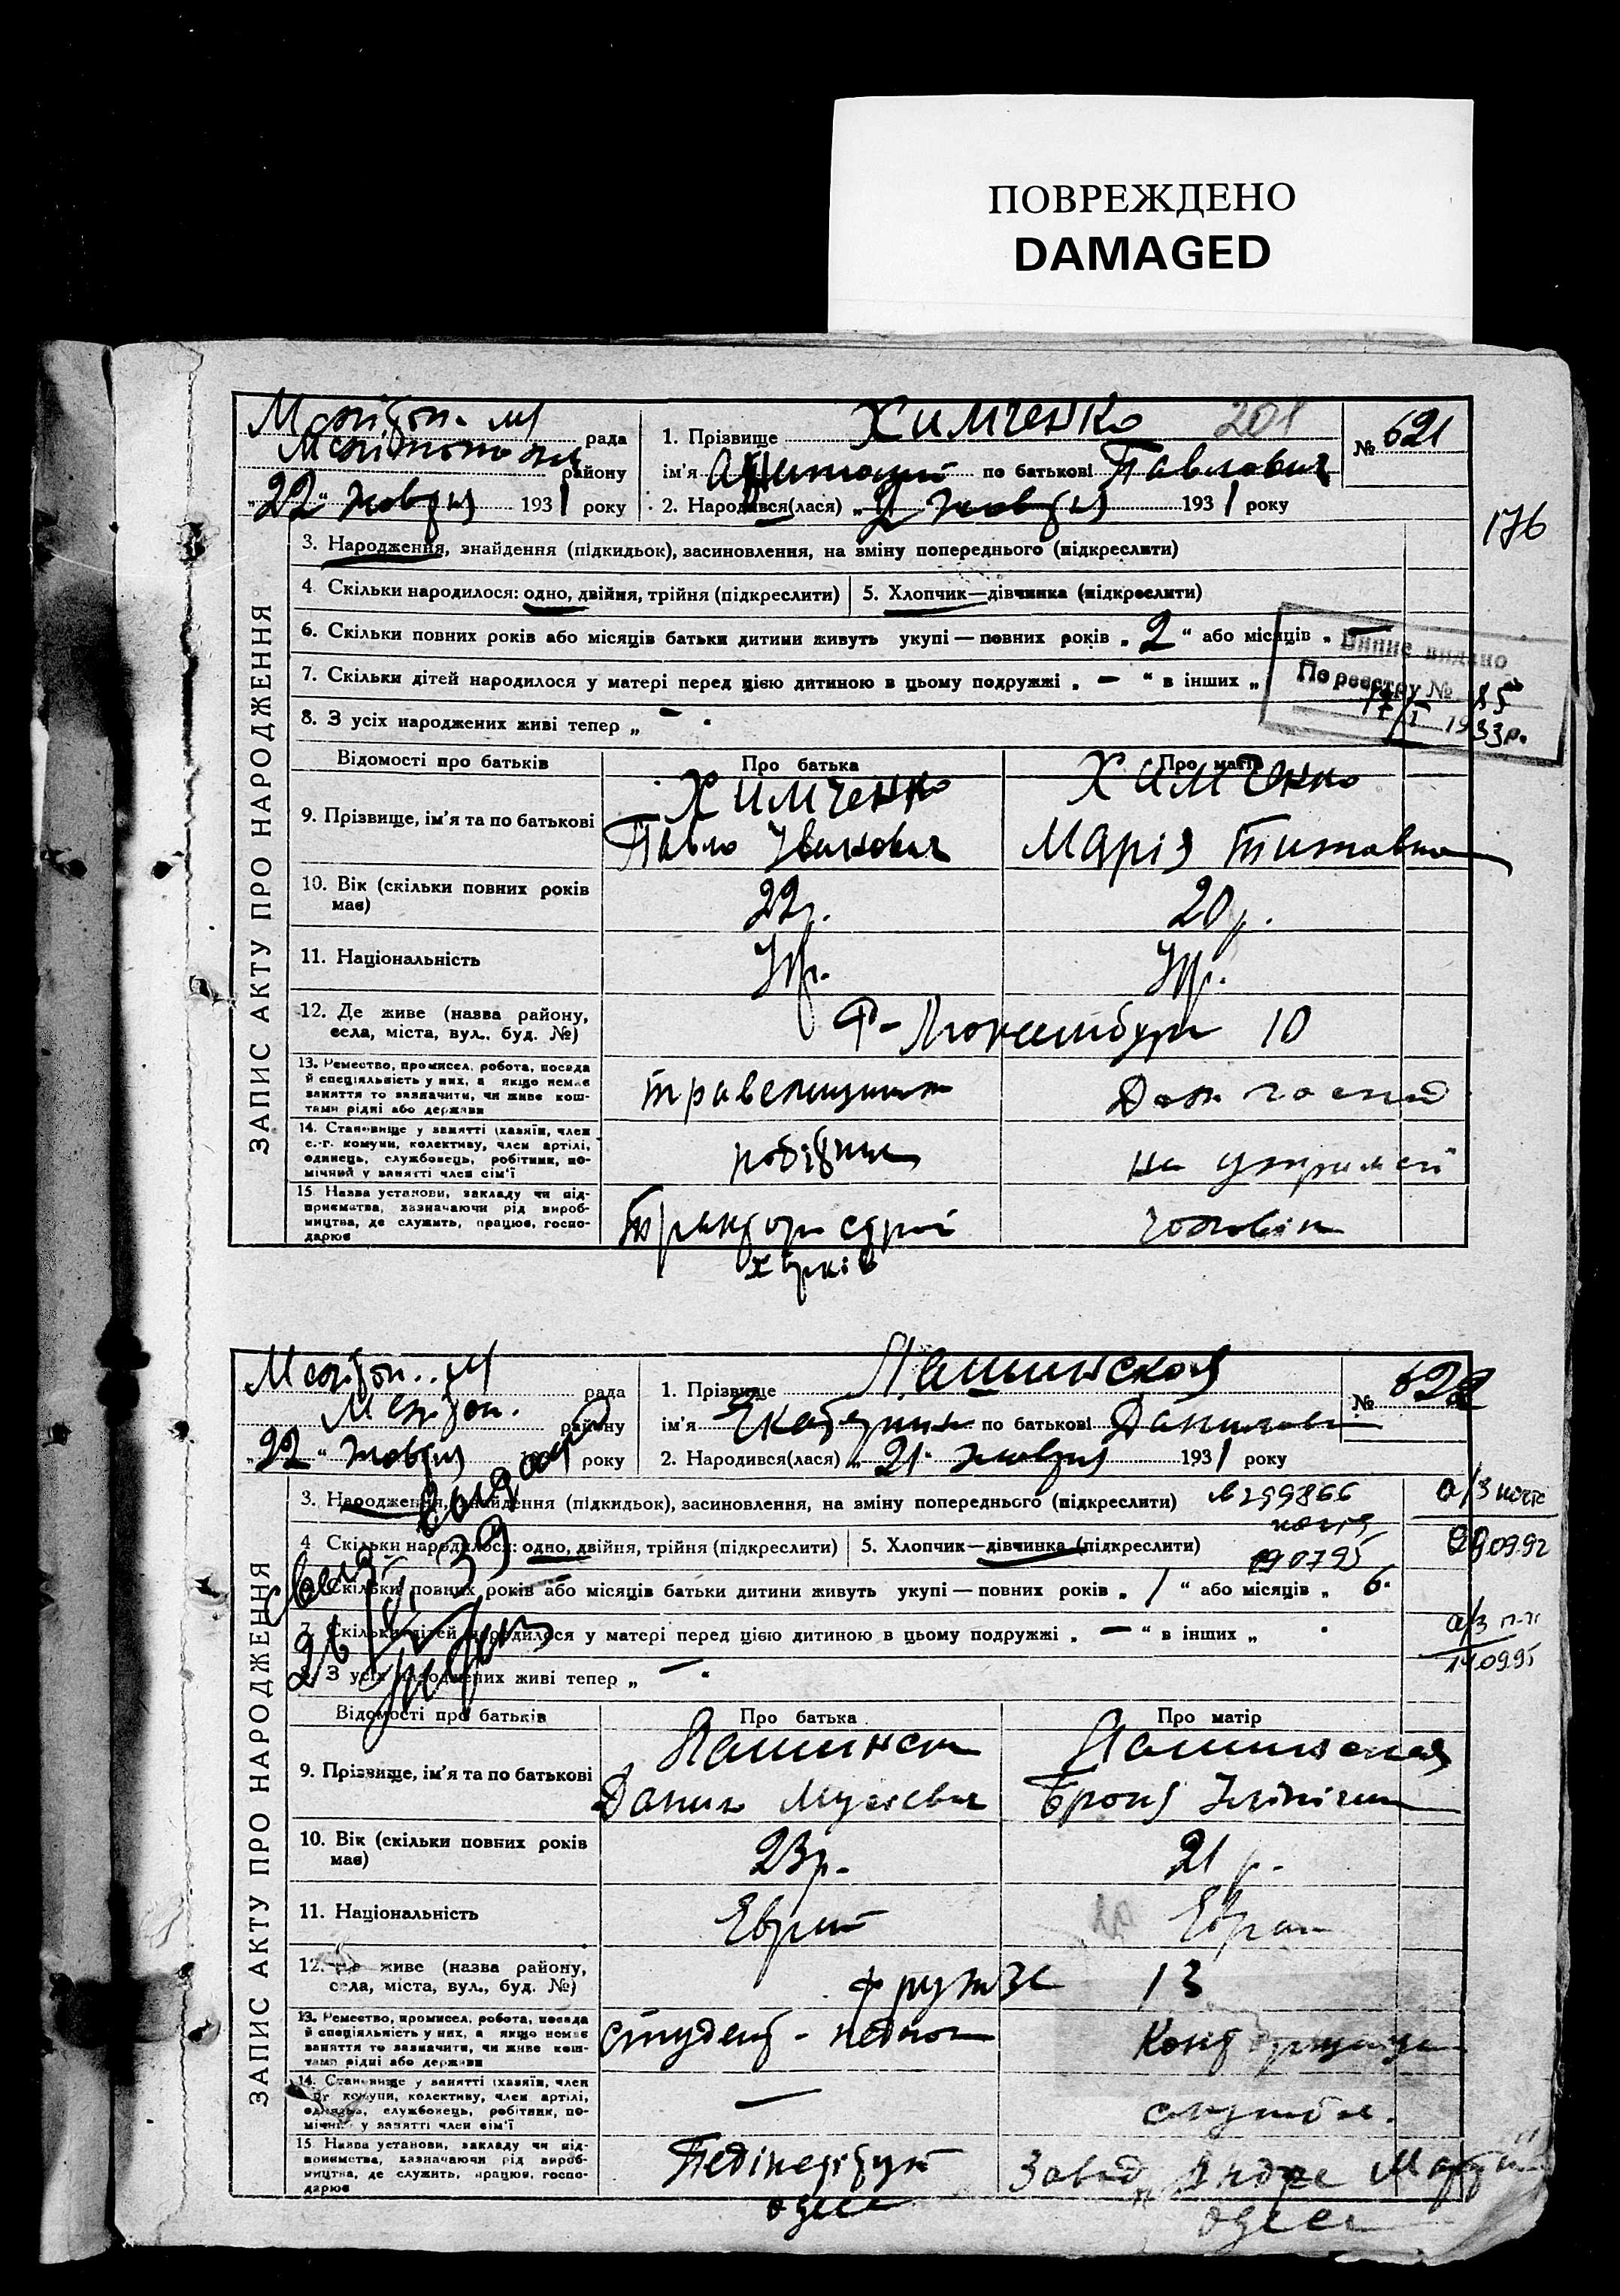 ПОВРЕЖДЕНО
DAMAGED
рада
району
"22" жовтня 1931 року
1. Прізвище Химченко 201
ім'я Анатолий по батькові Павлович
2. Народився(лася) „2 жовтня 1931 року
№ 621
176
3. Народження, знайдення (підкидьок), засиновлення, на зміну попереднього (підкреслити)
4 Скільки народилося: одно, двійня, трійня (підкреслити)
5. Хлопчик—дівчинка (підкреслити)
6. Скільки повних років або місяців батьки дитини живуть укупі — повних років „ 2 " або місяців „ —
7. Скільки дітей народилося у матері перед цією дитиною в цьому подружжі „ — " в інших „
8. З усіх народжених живі тепер „ —
По реєстру № 85
17/I 1933р.
ЗАПИС АКТУ ПРО НАРОДЖЕННЯ
Відомості про батьків
Про батька
Про матір
9. Прізвище, ім'я та по батькові
Химченко
Павло Иванович
Химченко
Марія Титовна
10. Вік (скільки повних років має)
22р.
20р.
11. Національність
Укр.
Укр.
12. Де живе (назва району, села, міста, вул., буд. №)
Р-Люксембург 10
13. Ремество, промисел, робота, посада й спеціяльність у них, а якщо немає заняття то зазначити, чи живе коштами рідні або держави
Дом. госпуд
14. Становище у занятті (хазяїн, член с.-г. комуни, колективу, член артілі, одинець, службовець, робітник, помічний у занятті член сім'ї
робітник
на утриман
15 Назва установи, закладу чи підприємства, зазначаючи рід виробництва, де служить, працює, господарює
Тракторострой
Харків
чоловіка
рада
району
"22" жовтня року
1. Прізвище Пашинская
ім'я Екатерина по батькові Даниловн
2. Народився(лася) „ 21 жовтня 1931 року
№ 622
3. Народження, знайдення (підкидьок), засиновлення, на зміну попереднього (підкреслити)
№ 299866
а/з
29.09.92
4 Скільки народилося: одно, двійня, трійня (підкреслити)
5. Хлопчик—дівчинка (підкреслити)
190795
Скільки повних років або місяців батьки дитини живуть укупі — повних років „ 1 " або місяців „ 6.
7. Скільки дітей народилося у матері перед цією дитиною в цьому подружжі „ — " в інших „
а/з
14.09.95
8. З усіх народжених живі тепер „ —
ЗАПИС АКТУ ПРО НАРОДЖЕННЯ
Відомості про батьків
Про батька
Про матір
9. Прізвище, ім'я та по батькові
Пашински
Данил
Пашинская
Броня
10. Вік (скільки повних років має)
23р.
21 р.
11. Національність
Еврей
Еврей
12. Де живе (назва району, села, міста, вул., буд. №)
Фрунзе 13
13. Ремество, промисел, робота, посада й спеціяльність у них, а якщо немає заняття то зазначити, чи живе коштами рідні або держави
студент - педагог
14. Становище у занятті (хазяїн, член с.-г. комуни, колективу, член артілі, одинець, службовець, робітник, помічний у занятті член сім'ї
—
службов.
15 Назва установи, закладу чи підприємства, зазначаючи рід виробництва, де служить, працює, господарює
Педінститут
Одеса
Завод Андре Марти
Одеса